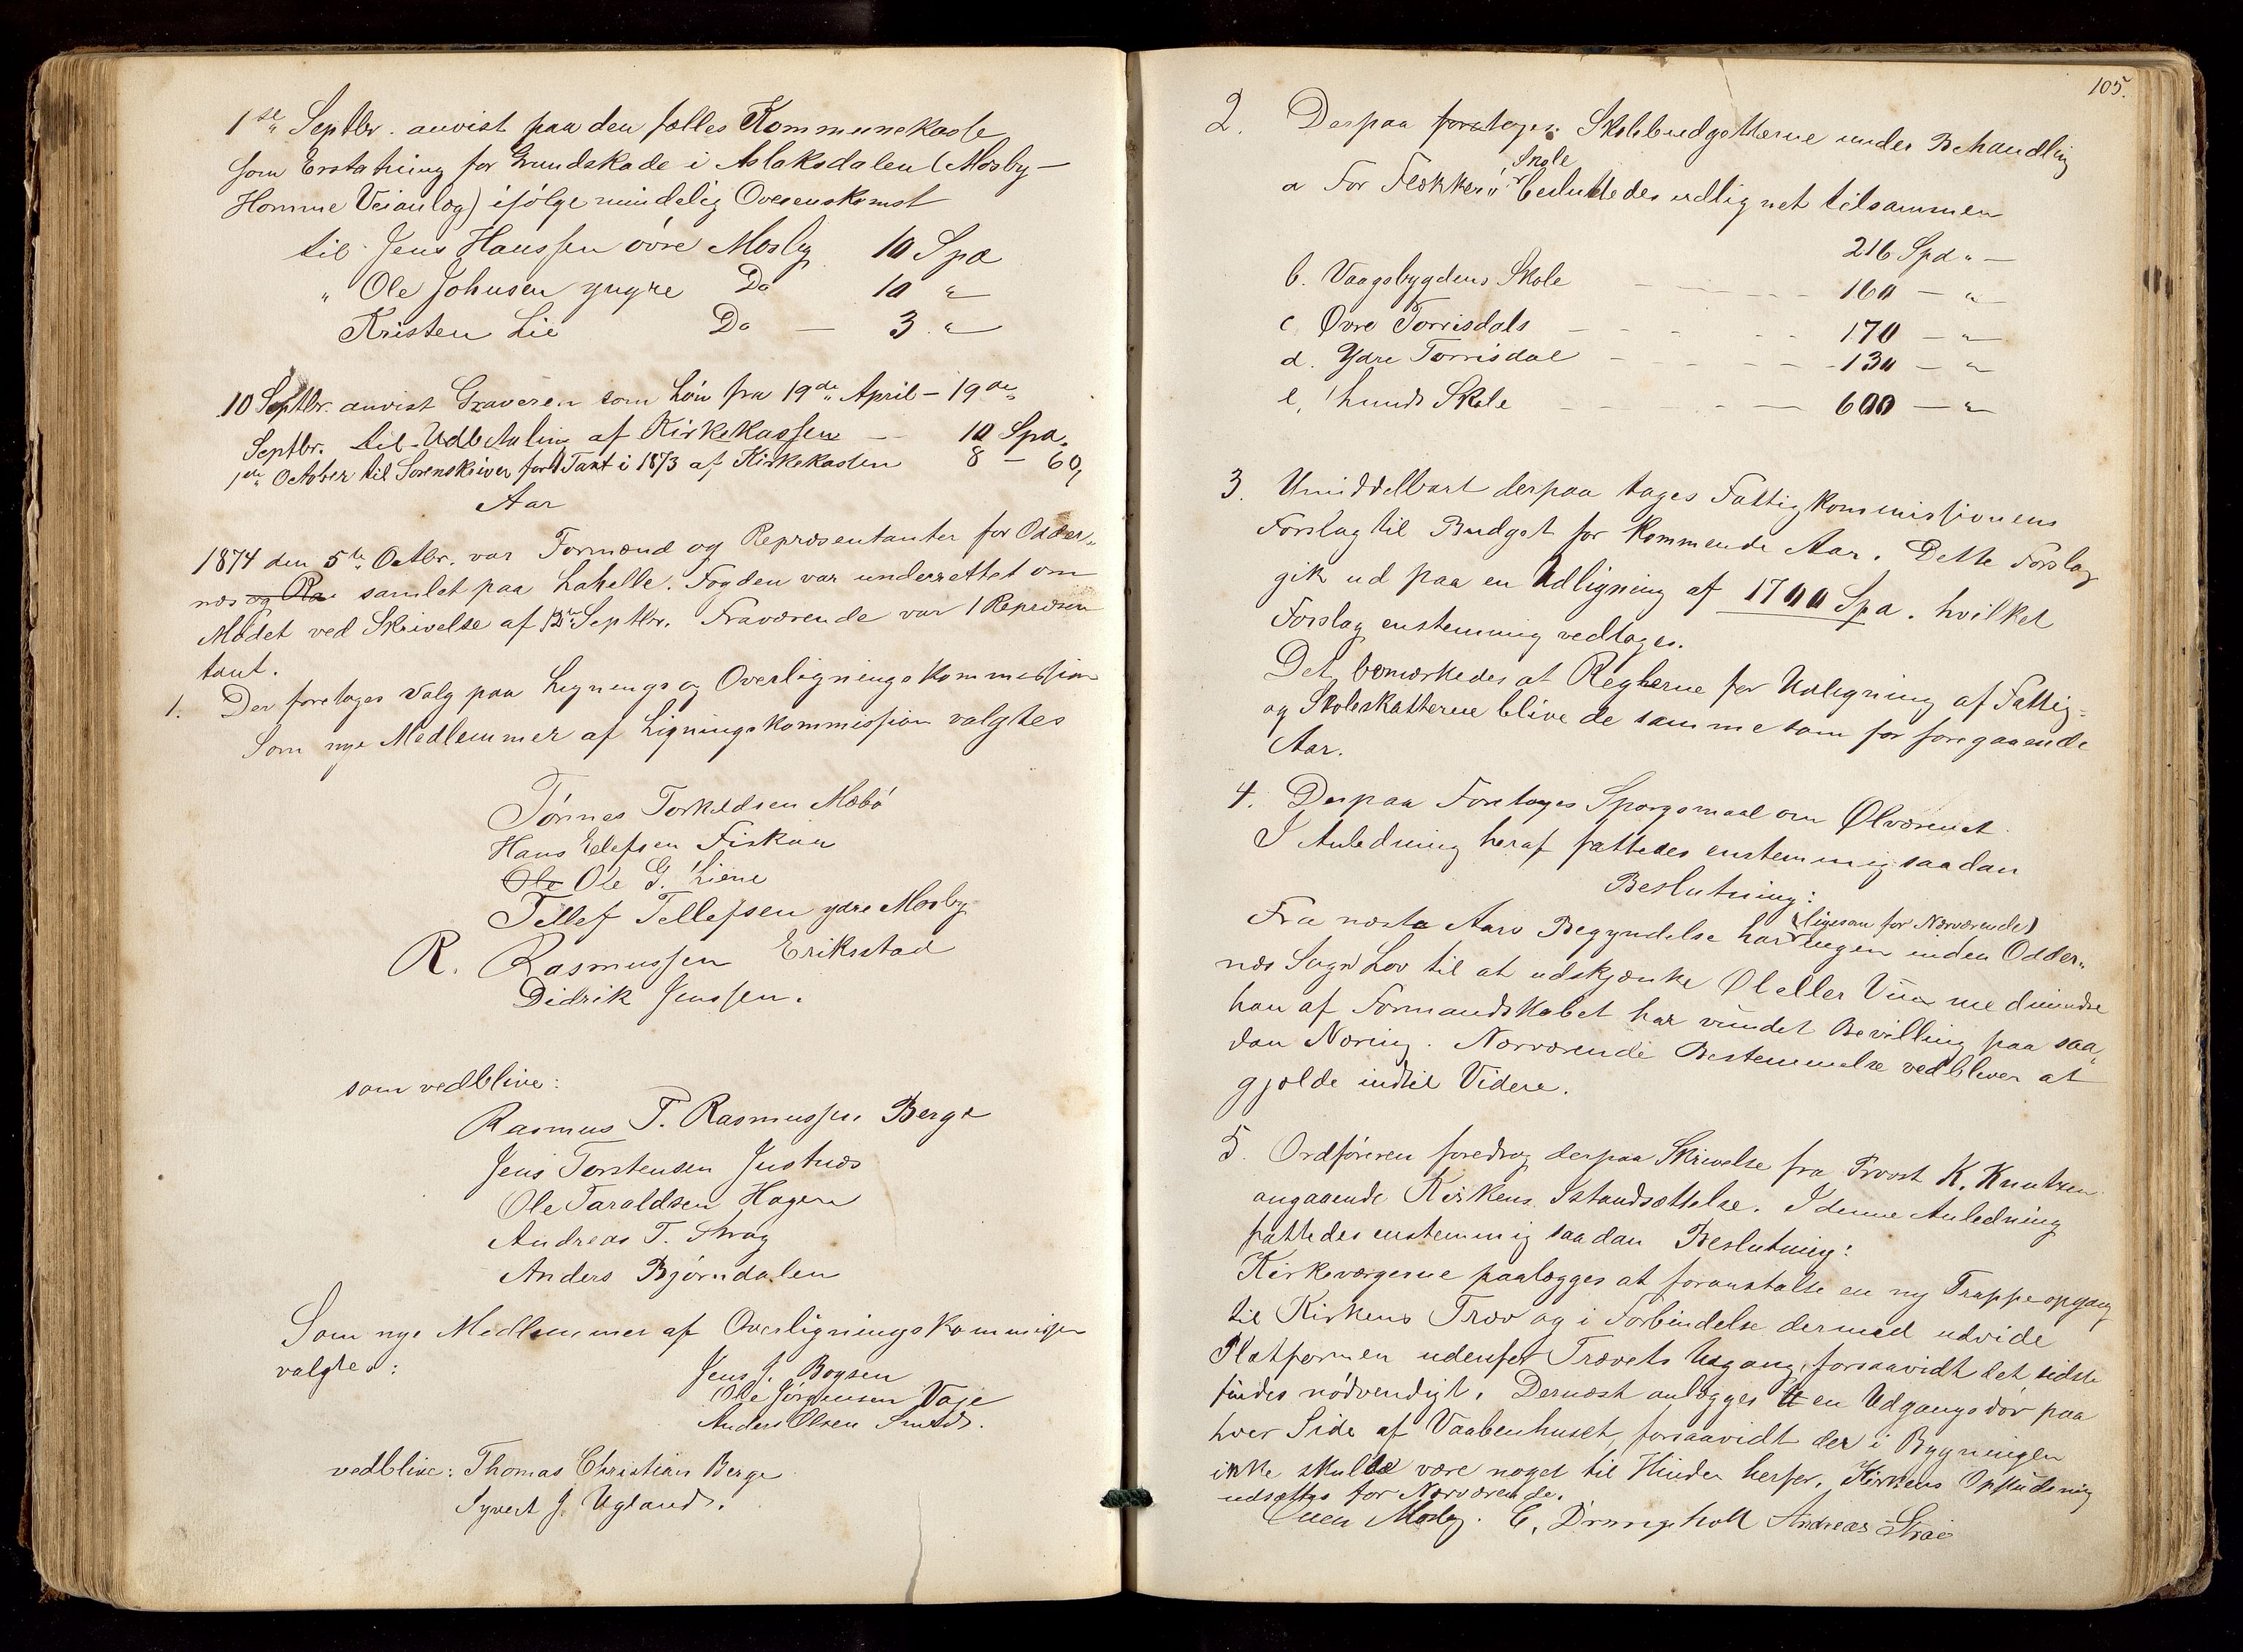 1ste Septbr. anvist paa den fælles Kommunekasse
som Erstatning for Grundskade i Aslaksdalen (Mosby-
Homme Veianlæg) ifölge mindelig Overenskomst
til Jens Hanssen övre Mosby 10 Spd
" Ole Johnsen yngre Do 10 "
Kristen Lie Do — 3 "
10 Septbr. anvist Graveren som Lön fra 19de April – 19de
Septbr. til Udbetaling af Kirkekassen — 10 Spd.
1ste October til Sorenskriver for 1 Taxt i 1873 af Kirkekassen 8 – 60,
Aar
1874 den 5te Octbr. var Formænd og Repræsentanter for Odder-
næs og Ra samlet paa Lahelle. Fogden var underrettet om
Mödet ved Skrivelse af 12te Septbr. Fraværende var 1 Repræsen
tant.
1. Der foretages Valg paa Lignings og Overligningskommission
Som nye Medlemmer af Ligningskommission valgtes
Tönnes Torkildsen Mæbö
Hans Ellefsen Fiskaa
Ole Ole G. Liene
Tellef Tellefsen ydre Mosby
R. Rasmussen Eriksstad
Didrik Jenssen.
som vedblive:
Rasmus T. Rasmussen Berge
Jens Torstensen Justnæs
Ole Taraldsen Hagen
Andreas T. Stray
Anders Bjørndalen
Som nye Medlemmer af Overligningskommission
valgtes:
Jens J. Boysen
Ole Jörgensen Vaje
Anders Olsen
vedblive: Thomas Christian Berge
Syvert J. Ugland.
105.
2. Derpaa foretages Skolebudgetterne under Behandling
Skole
a For Flækkerö besluttedes udlignet tilsammen
216 Spd " —
b. Vaagsbygdens Skole — 160 — "
c Øvre Torrisdals — 170 — "
d. Ydre Torrisdal — 130 — "
e, Lunds Skole — 600 — "
3. Umiddelbart derpaa tages Fattigkommissionens
Forslag til Budget for kommende Aar. Dette Forslag
gik ud paa en Udligning af 1700 Spd. hvilket
Forslag enstemmig vedtages.
Det bemærkedes at Reglerne for Udligning af Fattig-
og Skoleskatterne blive de samme som for foregaaende
Aar.
4. Derpaa Foretages Spørgsmaal om Ølværenet
I Anledning heraf fattedes enstemmig saadan
Beslutning:
(ligesom for Nærværende)
Fra næste Aars Begyndelse har ingen inden Odder-
næs Sogn Lov til at udskjænke Øl eller Viin med mindre
han af Formandskabet har vundet Bevilling paa saa-
dan Næring. Nærværende Bestemmelse vedbliver at
gjælde indtil Videre.
5. Ordföreren foredrog derpaa Skrivelse fra Provst K. Knutzen
angaaende Kirkens Istandsættelse. I denne Anledning
fattedes enstemmig saadan Beslutning:
Kirkeværgerne paalægges at foranstalte en ny Trappeopgang
til Kirkens Træv og i Forbindelse dermed udvide
Platformen udenfor Trævets Udgang, forsaavidt det sidste
findes nödvendigt. Dernæst anlægges en Udgangsdör paa
hver Side af Vaabenhuset, forsaavidt der i Bygningen
ikke skulde være noget til Hinder herfor. Kirkens Oppudsning
udsættes for Nærværende.
Ouen Mosby. C. Drangsholt Andreas Strai